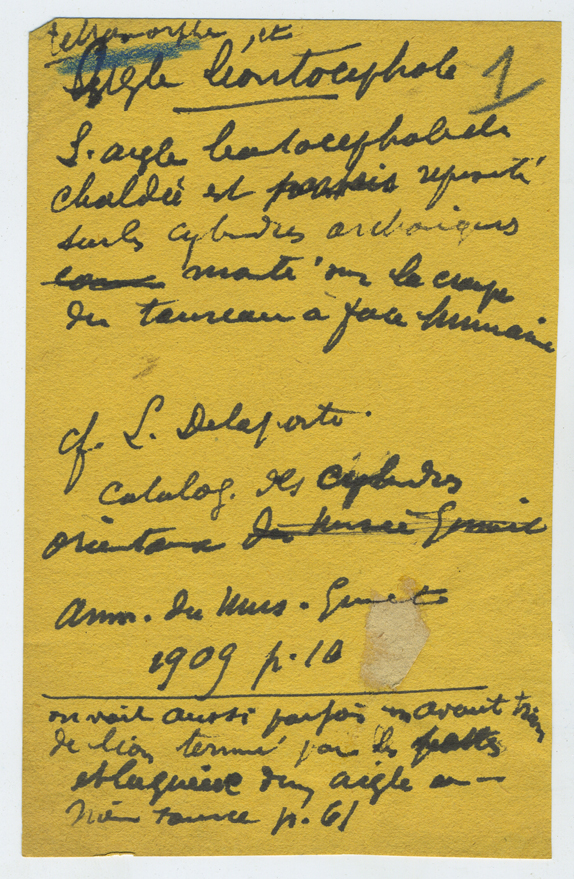 tétramorphe, et
Aigle léontocéphale 1
L'aigle léontocéphale de
chaldée est parfois représenté
sur les cylindres archaiques
monté sur la croupe
du taureau à face humaine
cf. L. Delaporte.
Catalog. des cylindres
orientaux du Musée Guimet
Ann. du Mus. Guimet
1909 p. 10
on voit aussi parfois un avant train
de lion terminé par les pattes
et la queue d'un aigle
même source p. 61